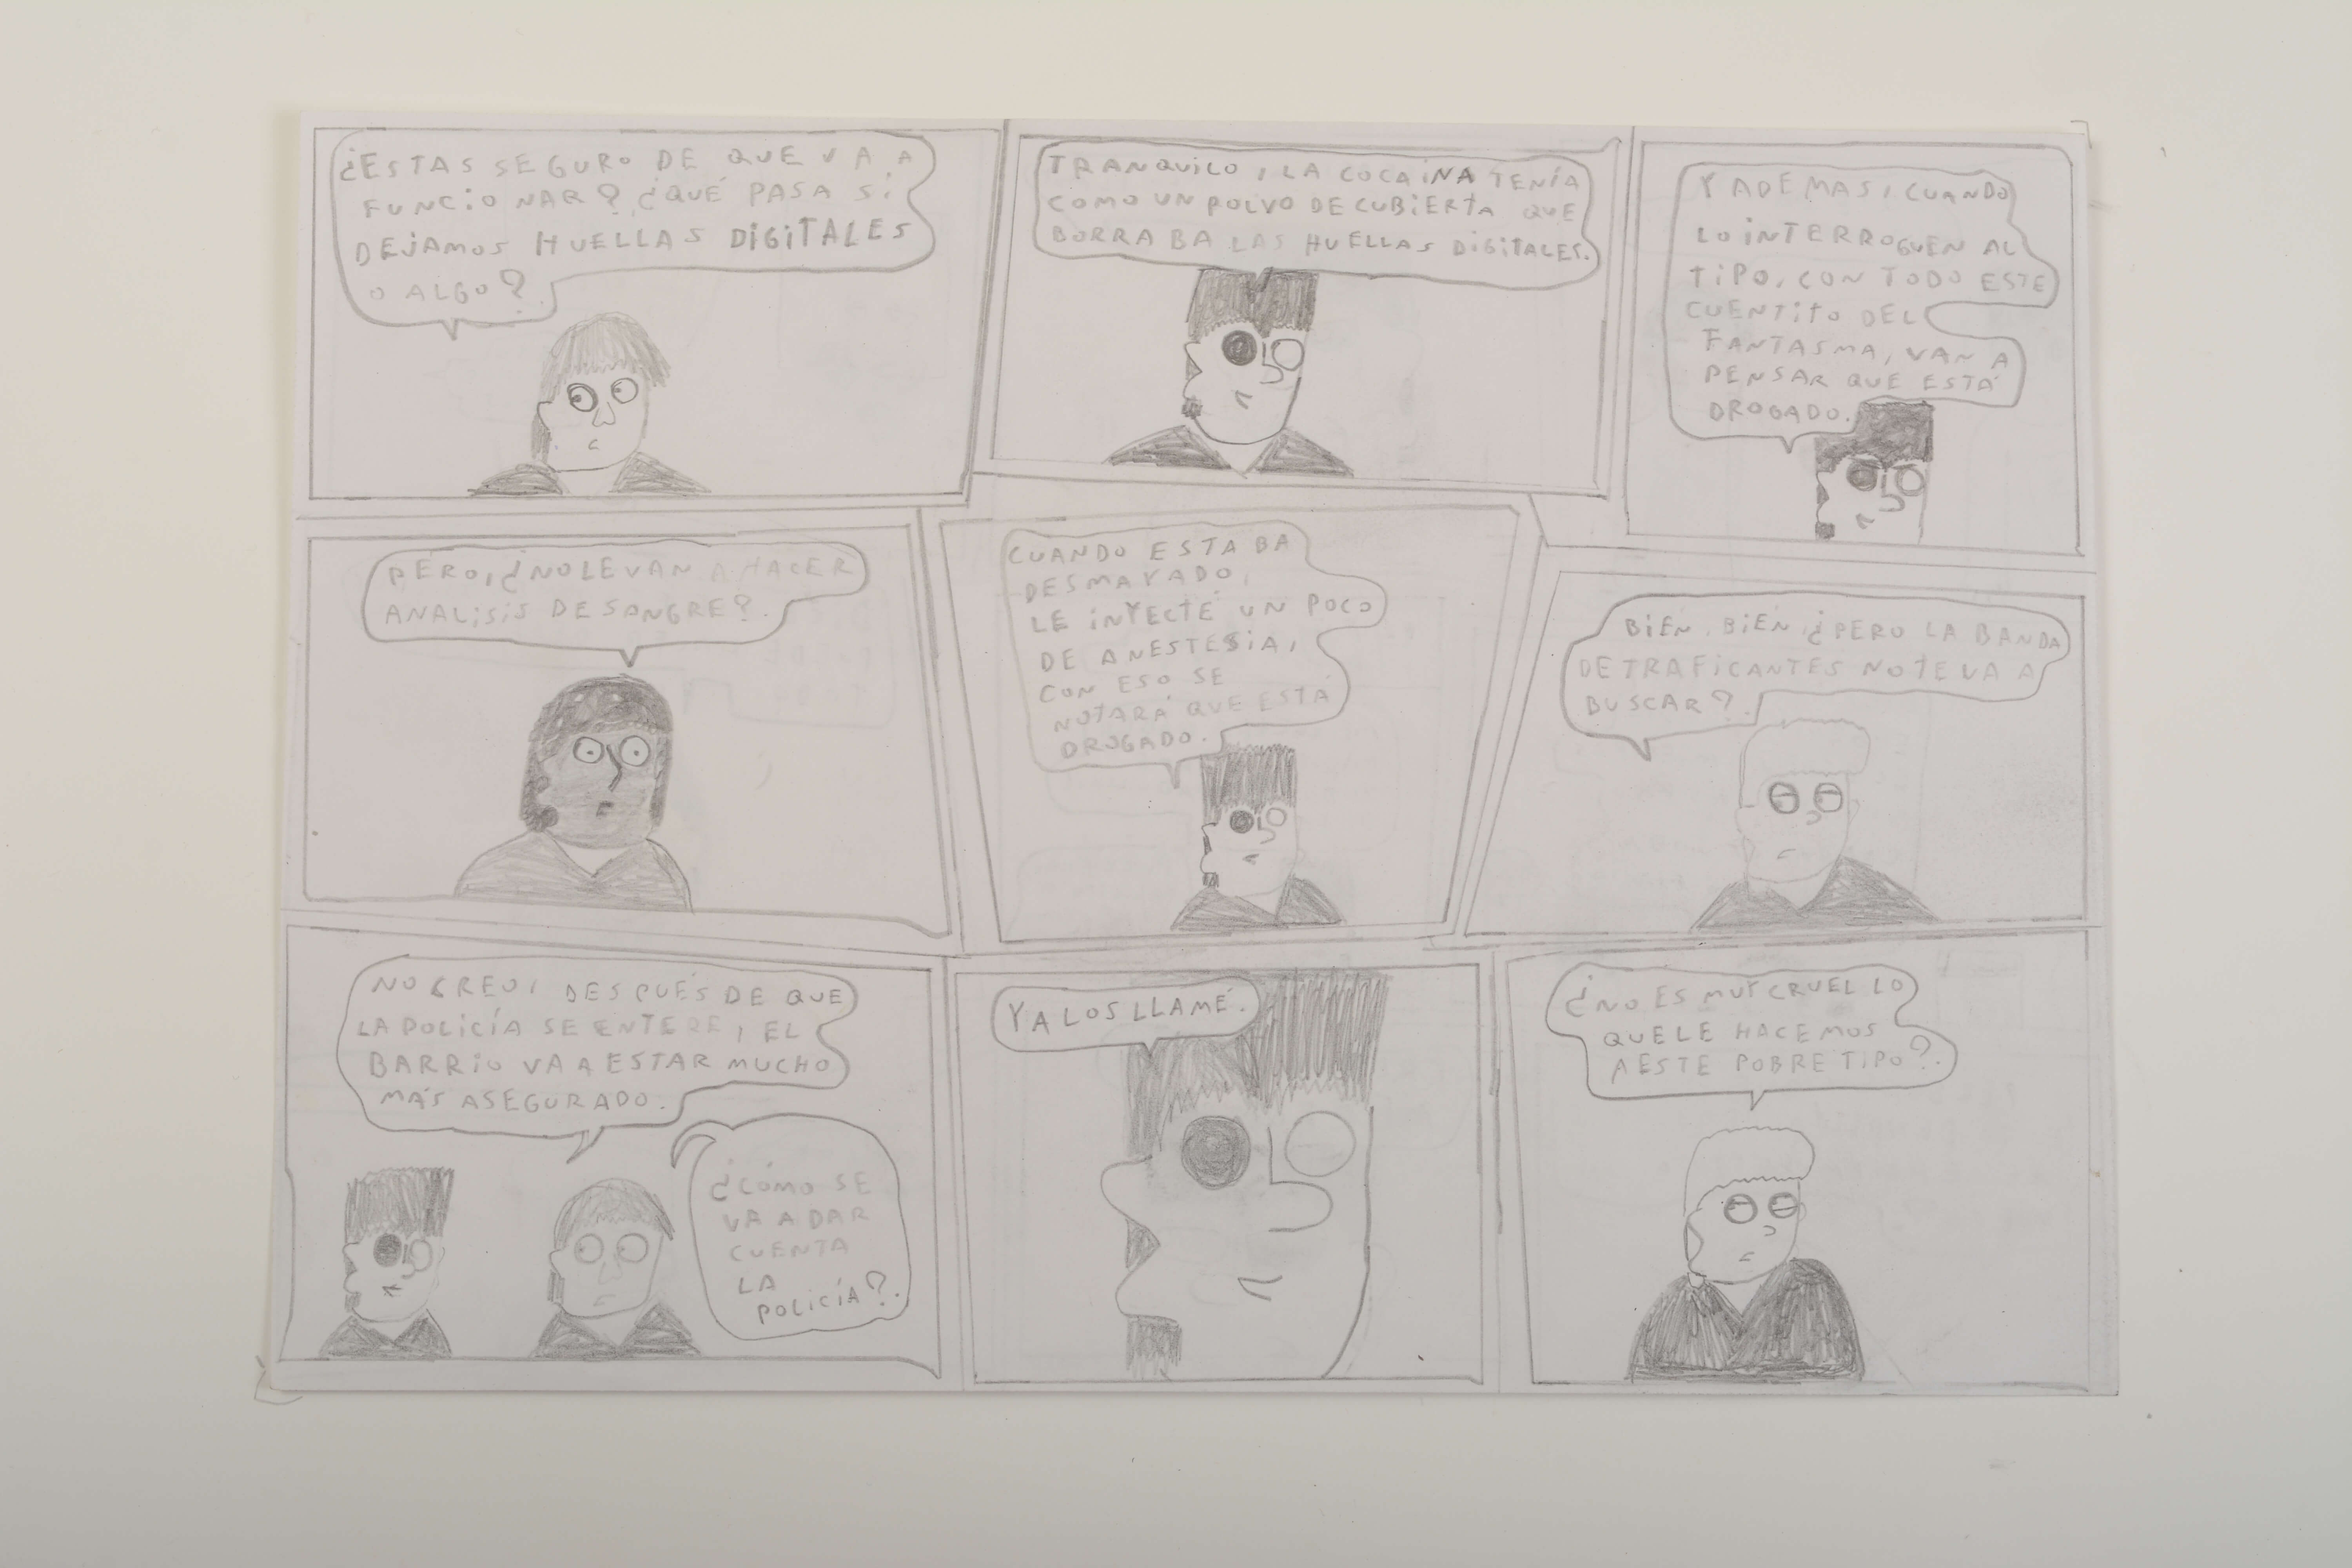 ¿ESTAS SEGURO DE QUE VA A
FUNCIONAR? ¿QUÉ PASA SI
DEJAMOS HUELLAS DIGITALES
O ALGO?.
TRANQUILO, LA COCAINA TENÍA
COMO UN POLVO DE CUBIERTA QUE
BORRABA LAS HUELLAS DIGITALES.
Y ADEMAS, CUANDO
LO INTERROGUEN AL
TIPO, CON TODO ESTE
CUENTITO DEL
FANTASMA, VAN A
PENSAR QUE ESTÁ
DROGADO.
PERO, ¿NO LE VAN A HACER
ANALISIS DE SANGRE?.
CUANDO ESTABA
DESMAYADO,
LE INYECTÉ UN POCO
DE ANESTESIA,
CON ESO SE
NOTARÁ QUE ESTÁ
DROGADO.
BIEN, BIEN, ¿PERO LA BANDA
DE TRAFICANTES NO TE VA A
BUSCAR?.
NO CREO, DESPUÉS DE QUE
LA POLICÍA SE ENTERE, EL
BARRIO VA A ESTAR MUCHO
MÁS ASEGURADO.
¿CÓMO SE
VA A DAR
CUENTA
LA
POLICÍA?.
YA LOS LLAMÉ.
¿NO ES MUY CRUEL LO
QUE LE HACEMOS
A ESTE POBRE TIPO?.